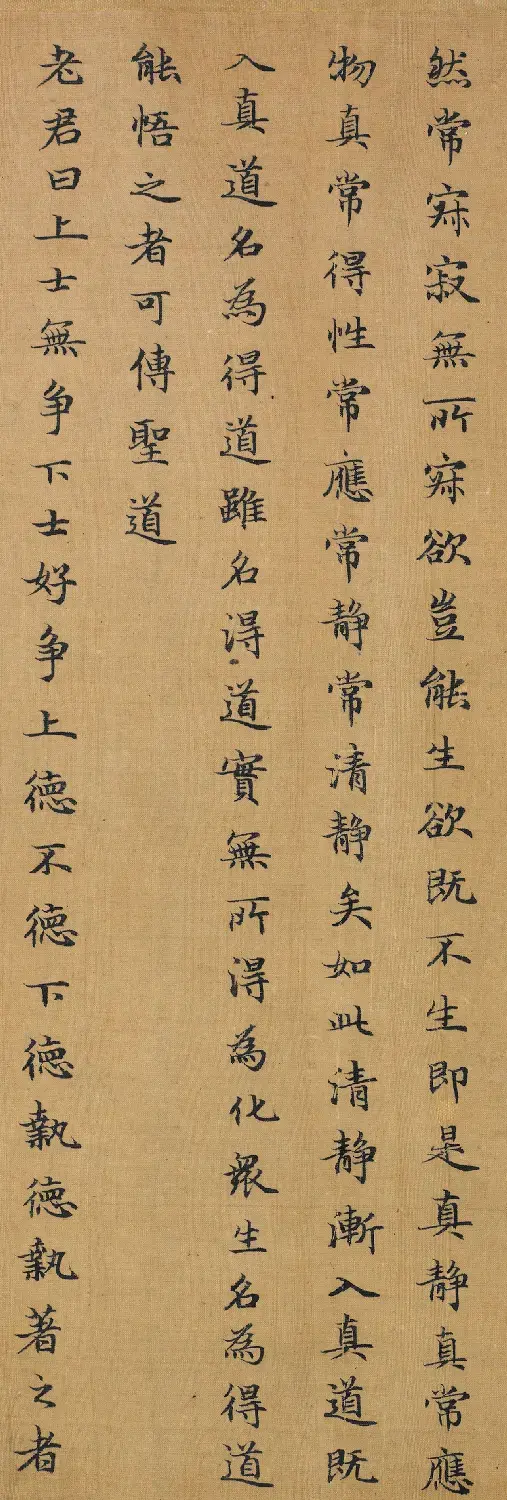 然常寂寂無所寂欲豈能生欲既不生即是真靜真常應
物真常得性常應常靜常清靜矣如此清靜漸入真道既
入真道名為得道雖名得道實無所得為化眾生名為得道
能悟之者可傳聖道
老君曰上士無争下士好争上德不德下德執德執著之者